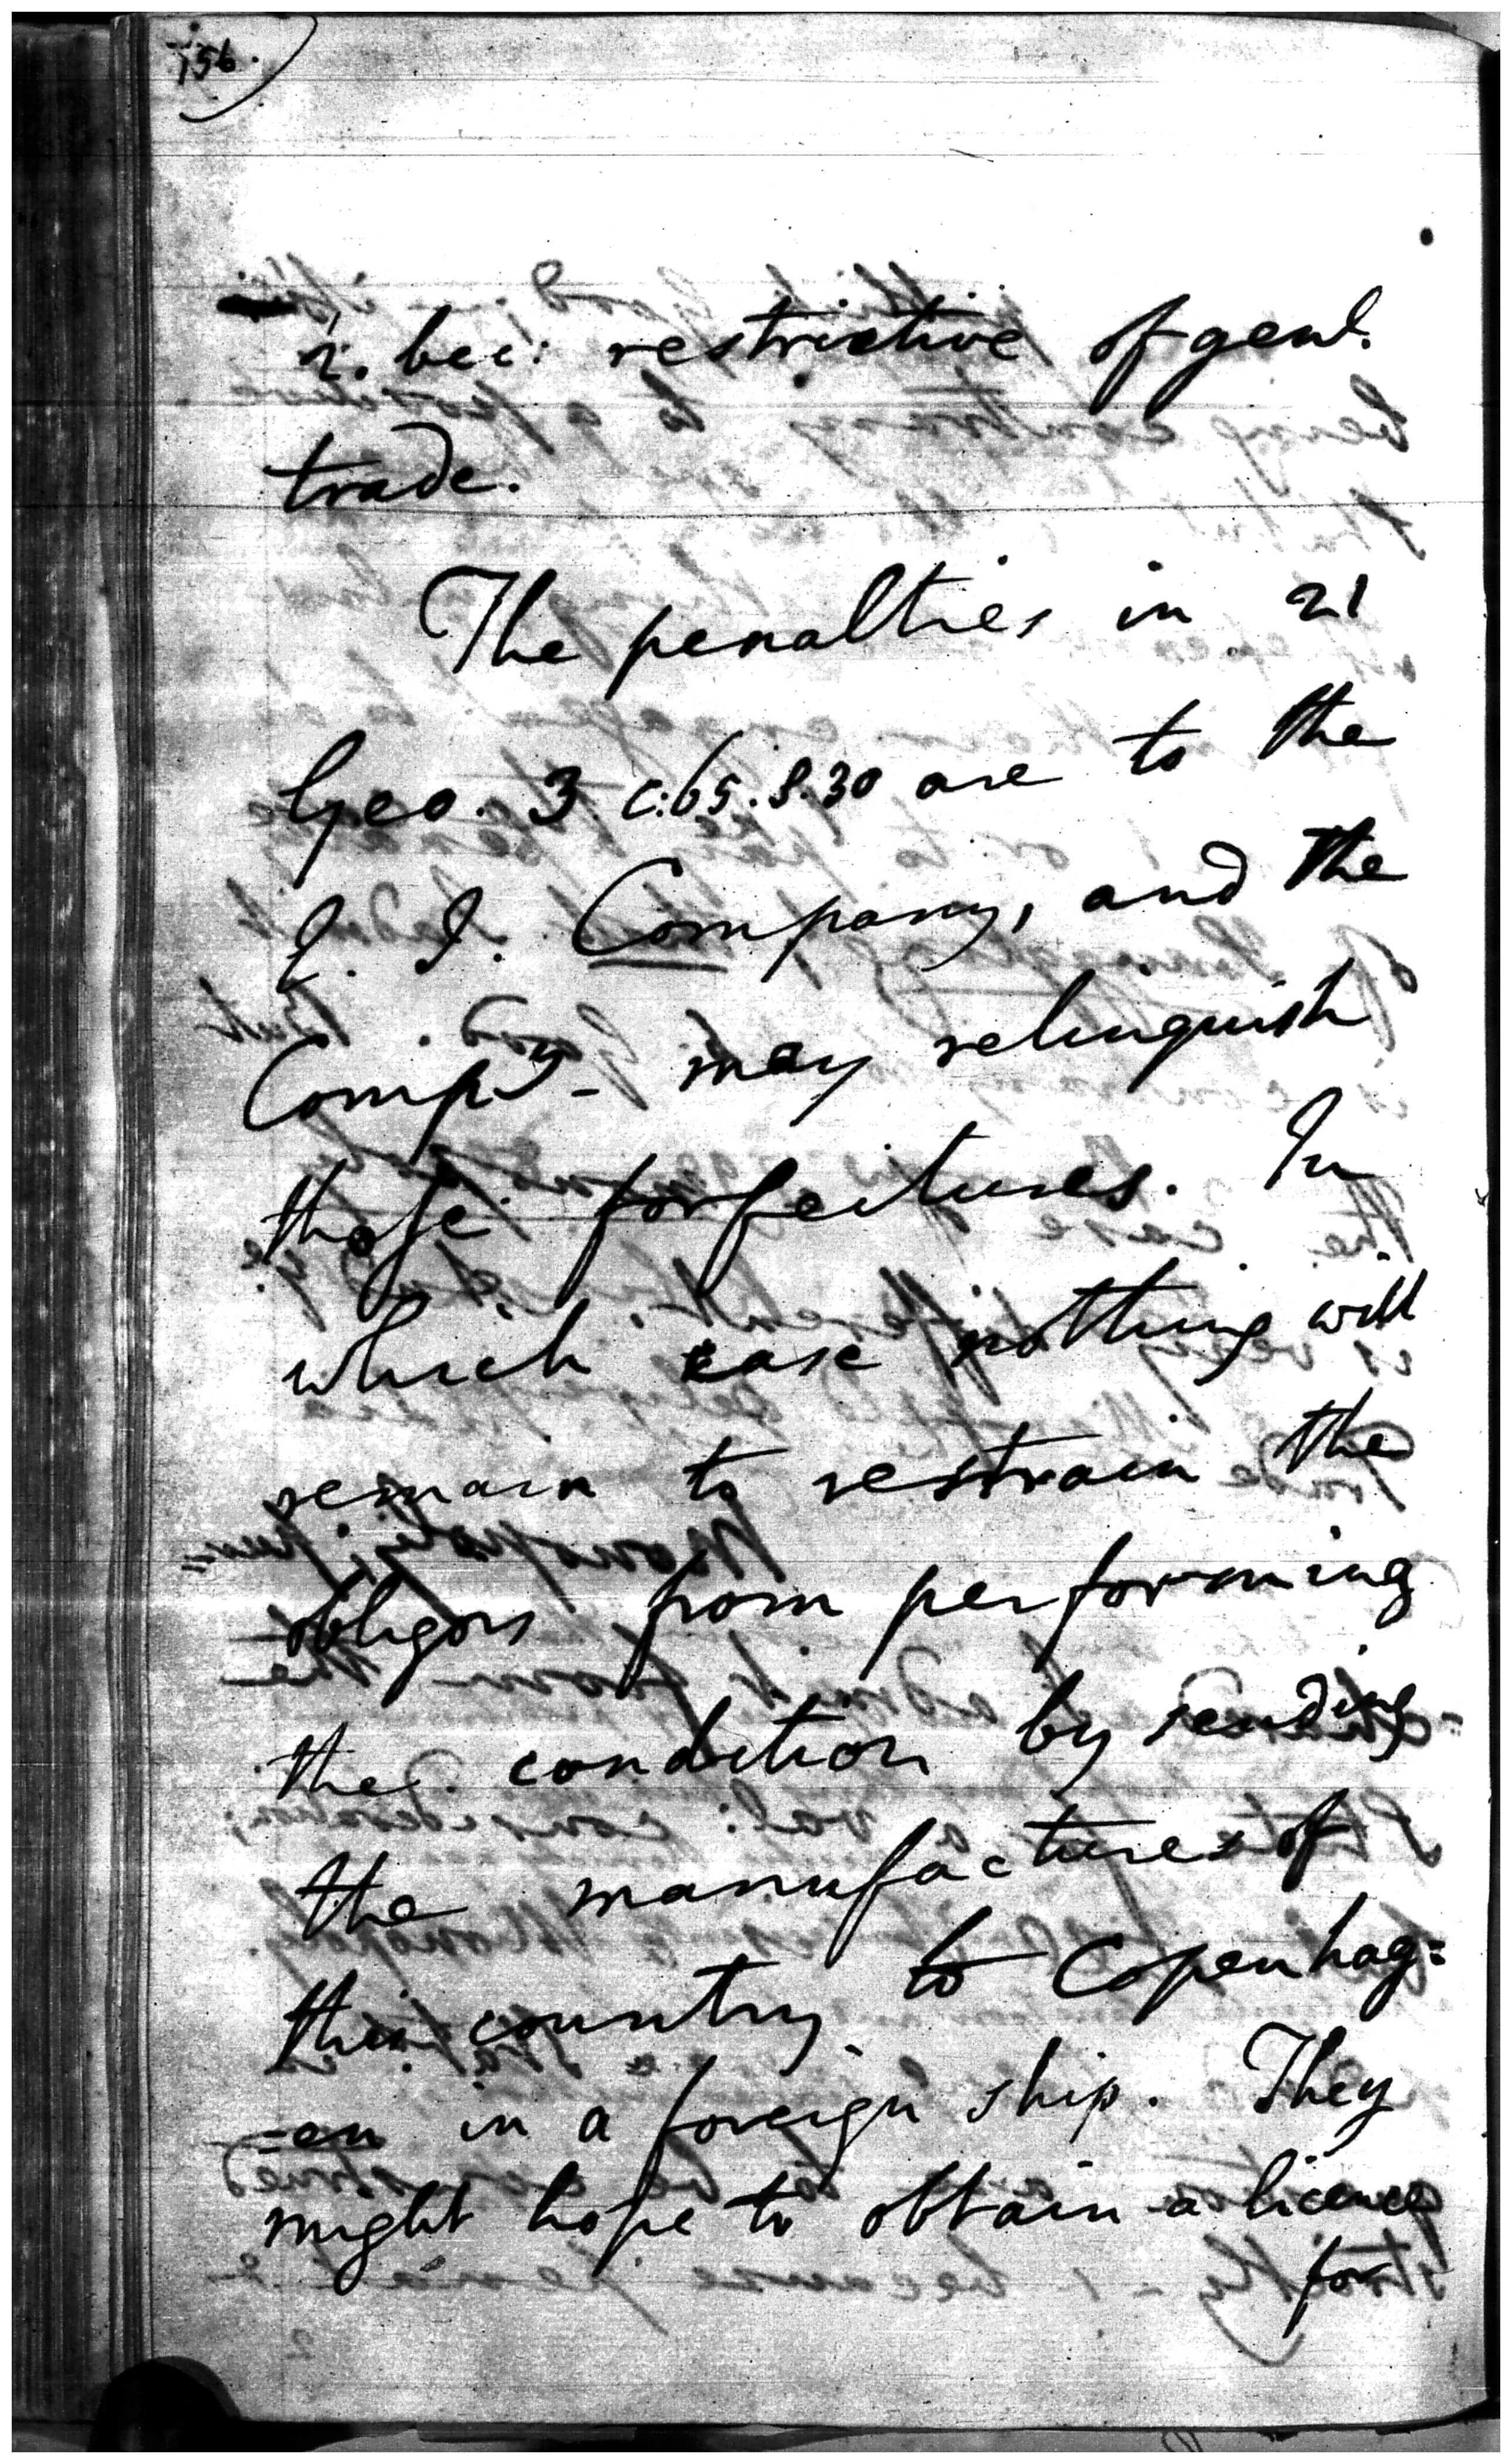 156.
2. bec: restrictive of genl.
trade.
The penalties in 21
Geo. 3. c: 65. S. 30 are to the
E. I. Company, and the
Compy- may relinquish
those forfeitures. In
which case nothing will
remain to restrain the
obligors from performing
the condition by sending
the manufactures of
this country to Copenhag=
=en in a foreign ship. They
might hope to obtain a licence
for